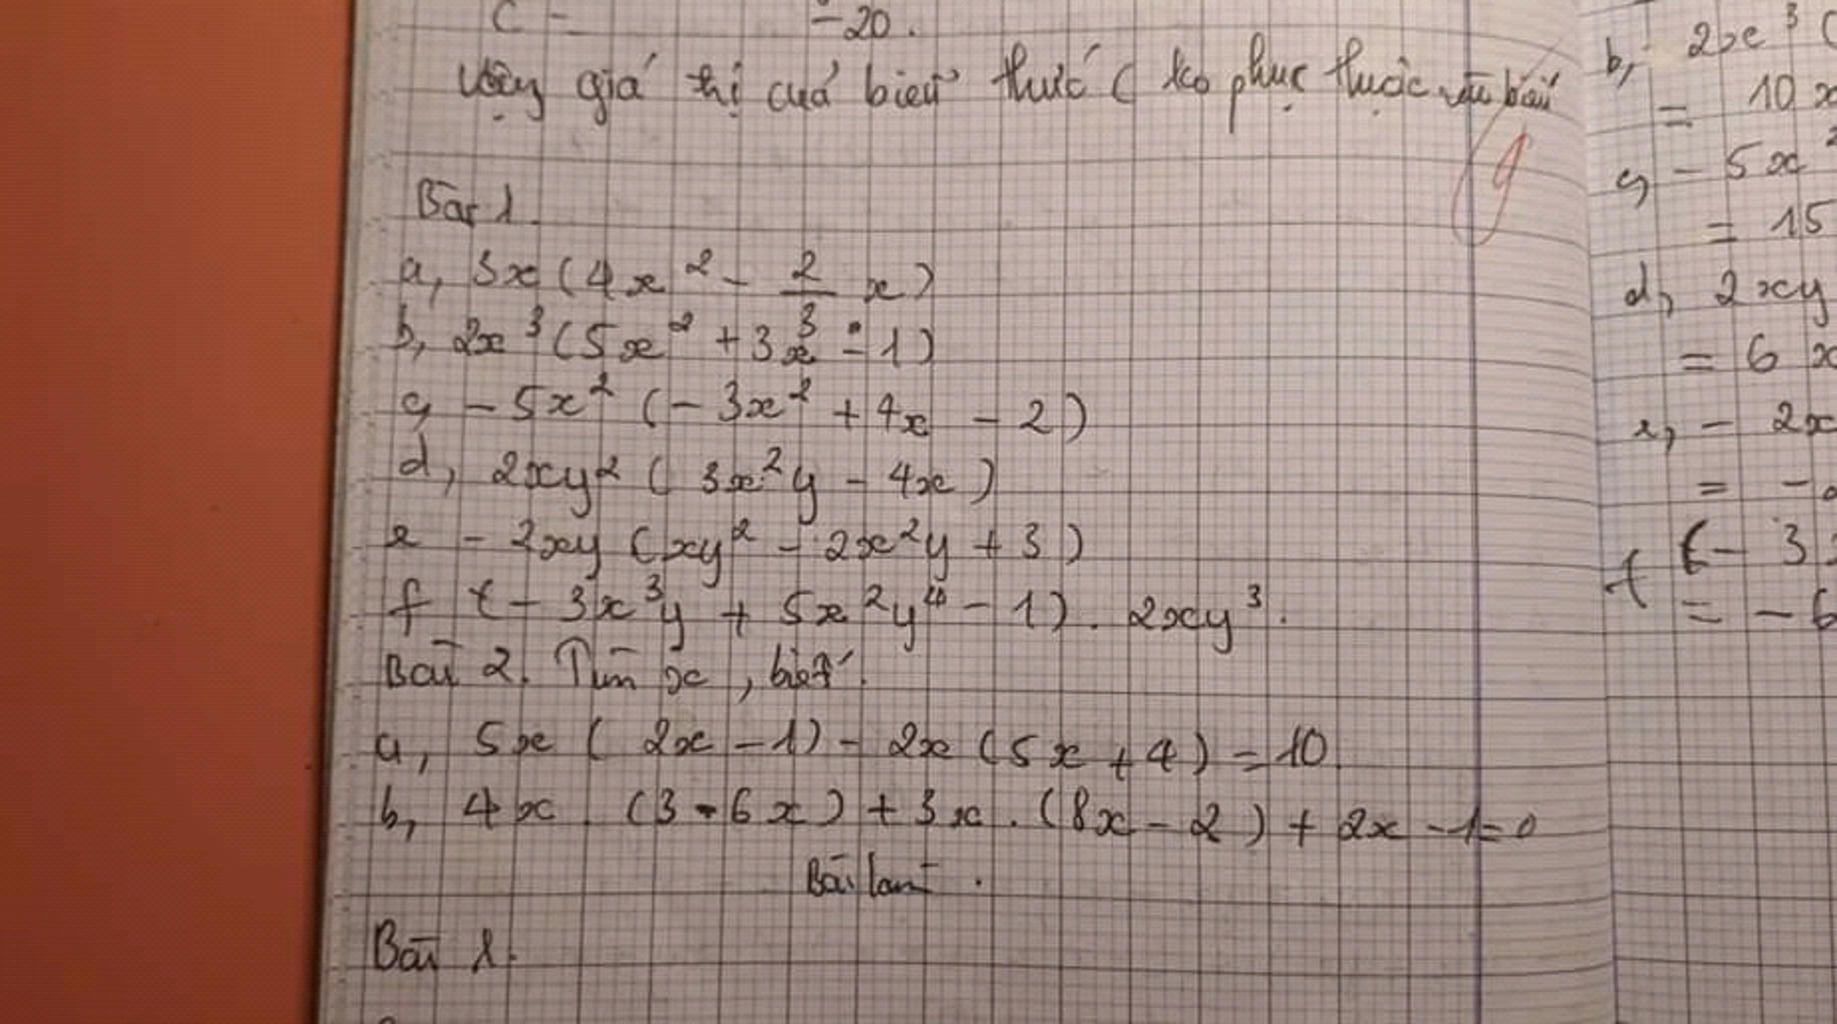 C = -20.
Vậy giá trị của biểu thức C ko phục thuộc vào biến
Bài 1.
a, 3x(4x² - 2/3 x)
b, 2x³(5x² + 3x - 1)
c, -5x² (-3x² + 4x - 2)
d, 2xy² (3x²y - 4x)
e - 2xy (xy² - 2x²y + 3)
f (-3x³y + 5x²y⁴ - 1). 2xy³.
Bài 2. Tìm x, biết.
a, 5x (2x - 1) - 2x (5x + 4) = 10
b, 4x. (3 - 6x) + 3x. (8x - 2) + 2x - 1 = 0
Bài làm.
Bài 1.
b, 2x³ (
= 10x
c, - 5x²
= 15
d, 2xy
= 6x
e, - 2x
= -
f (- 3
= - 6